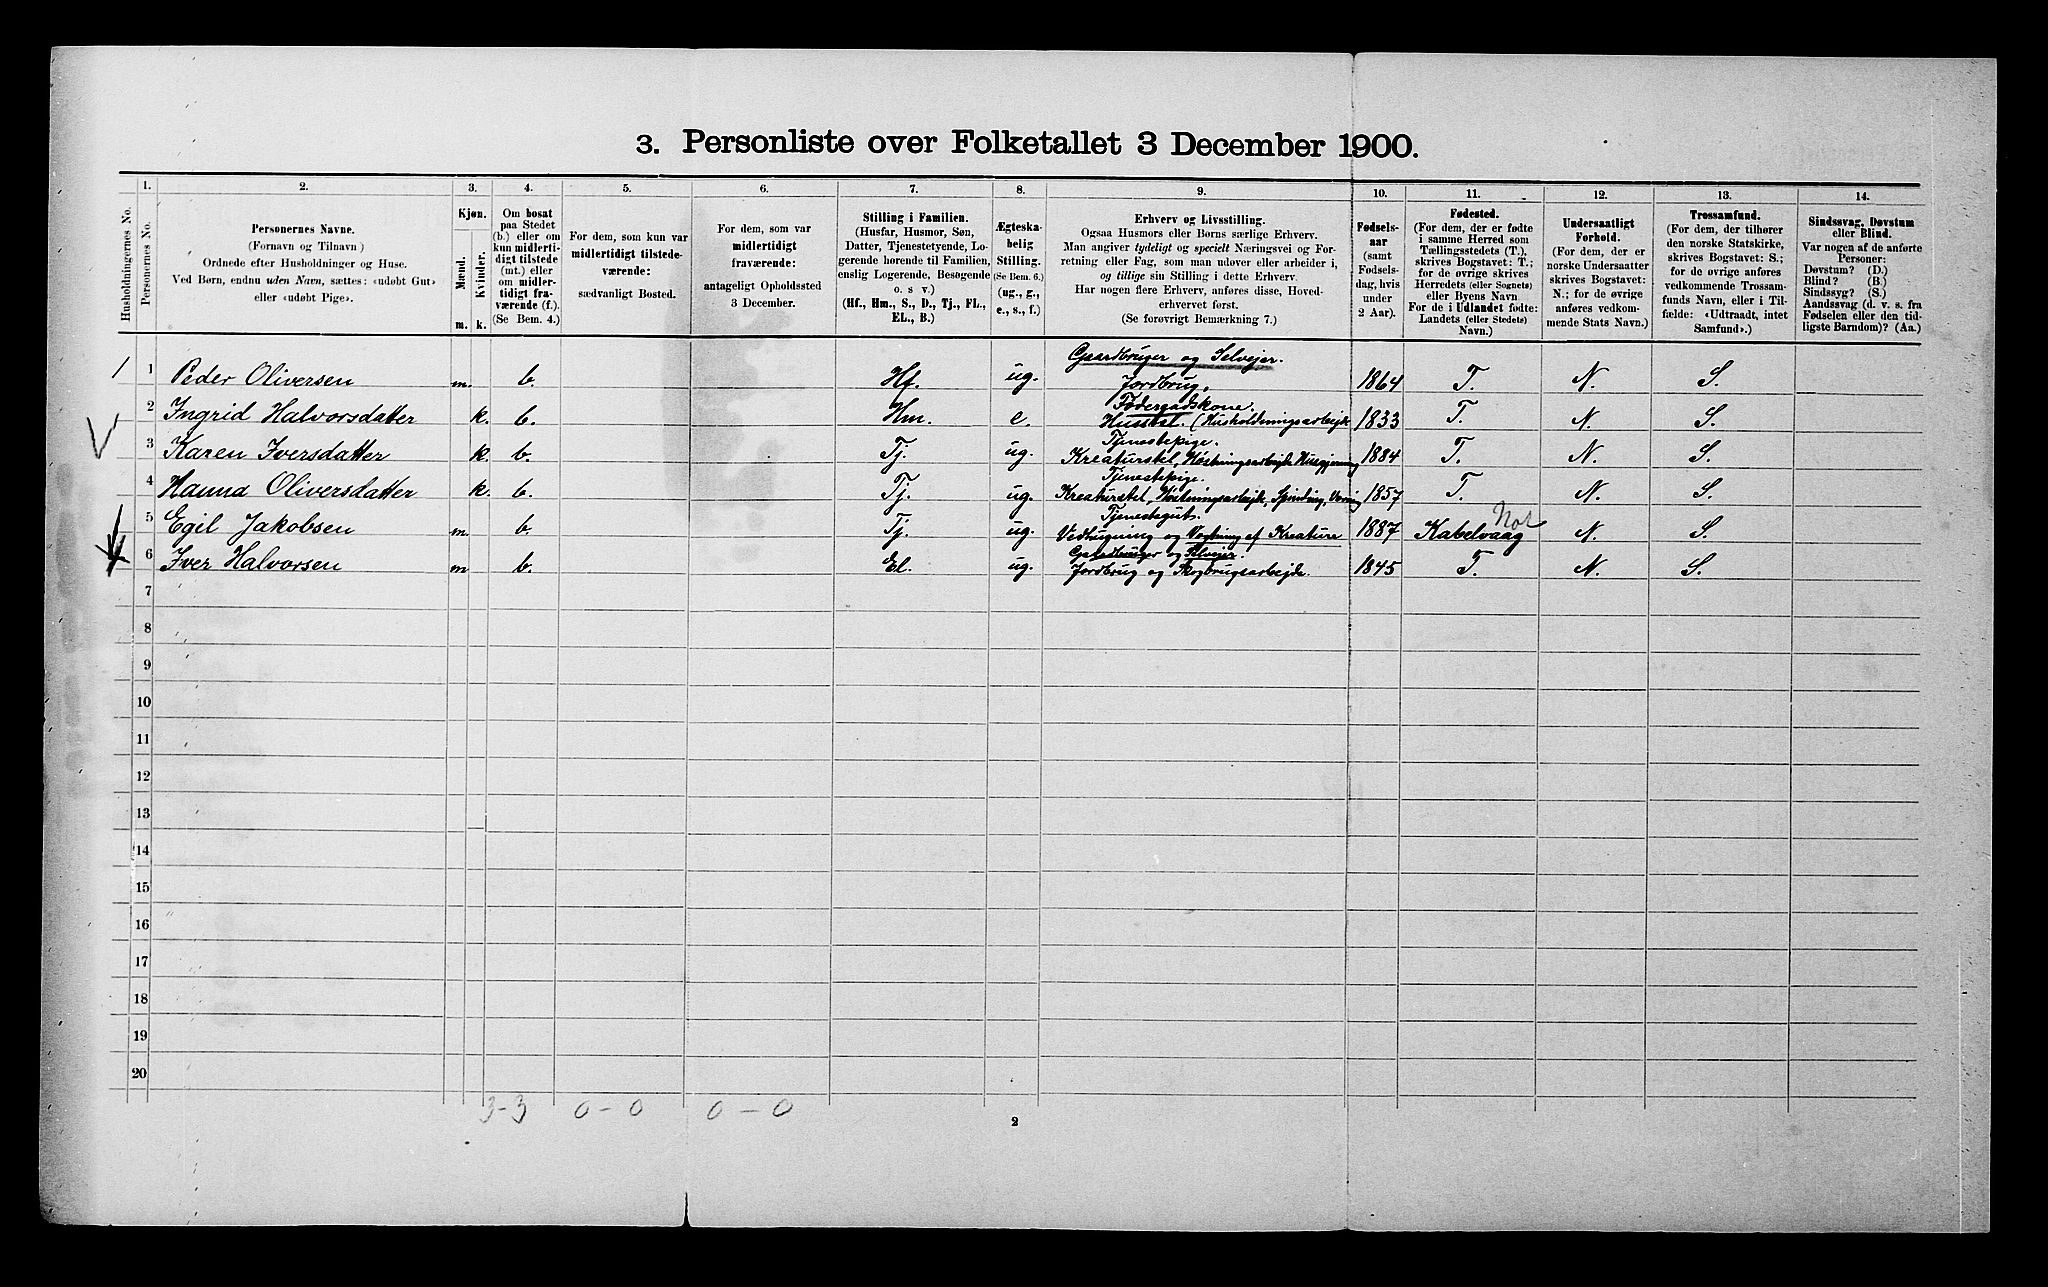 3. Personliste over Folketallet 3 December 1900.
1. 2. 3. 4. 5. 6. 7. 8. 9. 10. 11. 12. 13. 14.
Husholdningernes No.
Personernes No.
Personernes Navne.
(Fornavn og Tilnavn)
Ordnede efter Husholdninger og Huse.
Ved Børn, endnu uden Navn, sættes: «udøbt Gut»
eller «udøbt Pige».
Kjøn.
Mænd.
Kvinder.
m. k.
Om bosat
paa Stedet
(b.) eller om
kun midlerti-
digt tilstede
(mt.) eller
om midler-
tidigt fra-
værende (f.).
(Se Bem. 4.)
For dem, som kun var
midlertidigt tilstede-
værende:
sædvanligt Bosted.
For dem, som var
midlertidigt
fraværende:
antageligt Opholdssted
3 December.
Stilling i Familien.
(Husfar, Husmor, Søn,
Datter, Tjenestetyende, Lo-
gerende hørende til Familien,
enslig Logerende, Besøgende
o. s. v.)
(Hf., Hm., S., D., Tj., FL.,
EL., B.)
Ægteska-
belig
Stilling.
(Se Bem. 6.)
(ug., g.,
e., s., f.)
Erhverv og Livsstilling.
Ogsaa Husmors eller Børns særlige Erhverv.
Man angiver tydeligt og specielt Næringsvei og For-
retning eller Fag, som man udøver eller arbeider i,
og tillige sin Stilling i dette Erhverv.
Har nogen flere Erhverv, anføres disse, Hoved-
erhvervet først.
(Se forøvrigt Bemærkning 7.)
Fødsels-
aar
(samt
Fødsels-
dag, hvis
under
2 Aar).
Fødested.
(For dem, der er fødte
i samme Herred som
Tællingsstedets (T.),
skrives Bogstavet: T.;
for de øvrige skrives
Herredets (eller Sognets)
eller Byens Navn
For de i Udlandet fødte:
Landets (eller Stedets)
Navn.)
Undersaatligt
Forhold.
(For dem, der er
norske Undersaatter
skrives Bogstavet:
N.; for de øvrige
anføres vedkom-
mende Stats Navn.)
Trossamfund.
(For dem, der tilhører
den norske Statskirke,
skrives Bogstavet: S.;
for de øvrige anføres
vedkommende Trossam-
funds Navn, eller i Til-
fælde: «Udtraadt, intet
Samfund».)
Sindssvag, Døvstum
eller Blind.
Var nogen af de anførte
Personer:
Døvstum? (D.)
Blind? (B.)
Sindssyg? (S.)
Aandssvag (d. v. s. fra
Fødselen eller den tid-
ligste Barndom)? (Aa.)
Gaardbruger og Selveier.
1 1 Peder Oliversen m. b. Hf. ug. Jordbrug. 1864 T. N. S.
Føderaadskone.
2 Ingrid Halvorsdatter k. b. Hm. e. Husstel. (Husholdningsarbejde 1833 T. N. S.
Tjenestepige.
3 Karen Iversdatter k. b. Tj. ug. Kreaturstel, Høstningsarbejde Husgjerning 1884 T. N. S.
Tjenestepige.
4 Hanna Oliversdatter k. b. Tj. ug. Kreaturstel, Høstningsarbejde, Spinding, Væving 1857 T. N. S.
Tjenestegut.
5 Egil Jakobsen m. b. Tj. ug. Vedhugning og Vogtning af Kreature 1887 Kabelvaag N. S.
Gaardbruger og Selveier.
6 Iver Halvorsen m b. El. ug. Jordbrug og Skogbrugsarbejde. 1845 T. N. S.
7
8
9
10
11
12
13
14
15
16
17
18
19
20
3-3 0-0 0-0
2